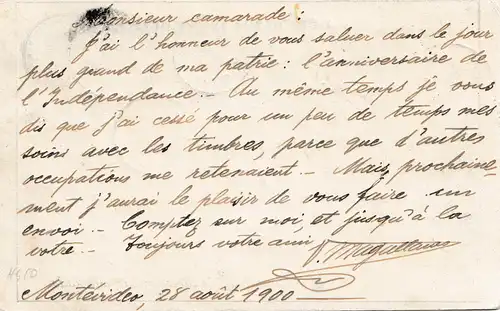 Monsieur camarade:
J'ai l'honneur de vous saluer dans le jour
plus grand de ma patrie: l'anniversaire de
l'Indépendance.- Au même temps je vous
dis que j'ai cessé pour un peu de temps mes
soins avec les timbres, parce que d'autres
occupations me retenaient.- Mais prochaine-
ment j'aurai le plaisir de vous faire un
envoi.- Comptez sur moi, et jusqu'à la
votre.- Toujours votre ami,
Montévideo, 28 août 1900